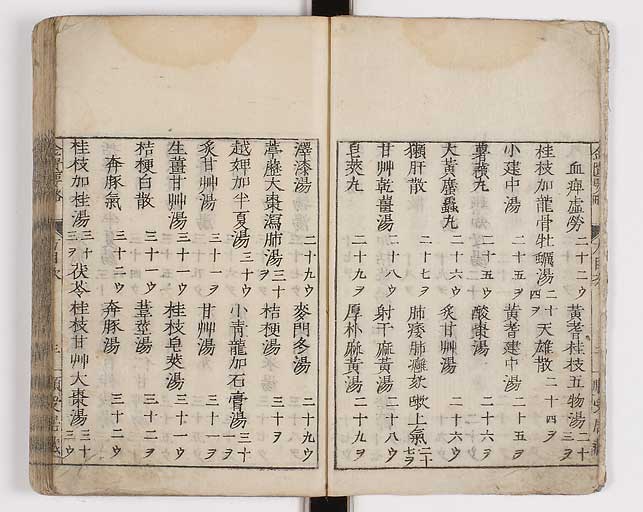 血痺虛勞 二十二ウ 黃耆桂枝五物湯 二十三ヲ
桂枝加龍骨牡蠣湯 二十四ヲ 天雄散 二十四ヲ
小建中湯 二十五ヲ 黃耆建中湯 二十五ヲ
薯蕷丸 二十五ウ 酸棗湯 二十六ヲ
大黃䗪蟲丸 二十六ウ 炙甘艸湯 二十六ウ
獺肝散 二十七ヲ 肺痿肺癰欬嗽上氣 二十七ヲ
甘艸乾薑湯 二十八ウ 射干麻黃湯 二十八ウ
皂莢丸 二十九ヲ 厚朴麻黃湯 二十九ヲ
澤漆湯 二十九ウ 麥門冬湯 二十九ウ
葶藶大棗瀉肺湯 三十ヲ 桔梗湯 三十ヲ
越婢加半夏湯 三十ウ 小青龍加石膏湯 三十一ヲ
炙甘艸湯 三十一ヲ 甘艸湯 三十一ヲ
生薑甘艸湯 三十一ウ 桂枝皂莢湯 三十一ウ
桔梗白散 三十一ウ 葦莖湯 三十二ヲ
奔豚氣 三十二ウ 奔豚湯 三十二ウ
桂枝加桂湯 三十三ヲ 茯苓桂枝甘艸大棗湯 三十三ウ